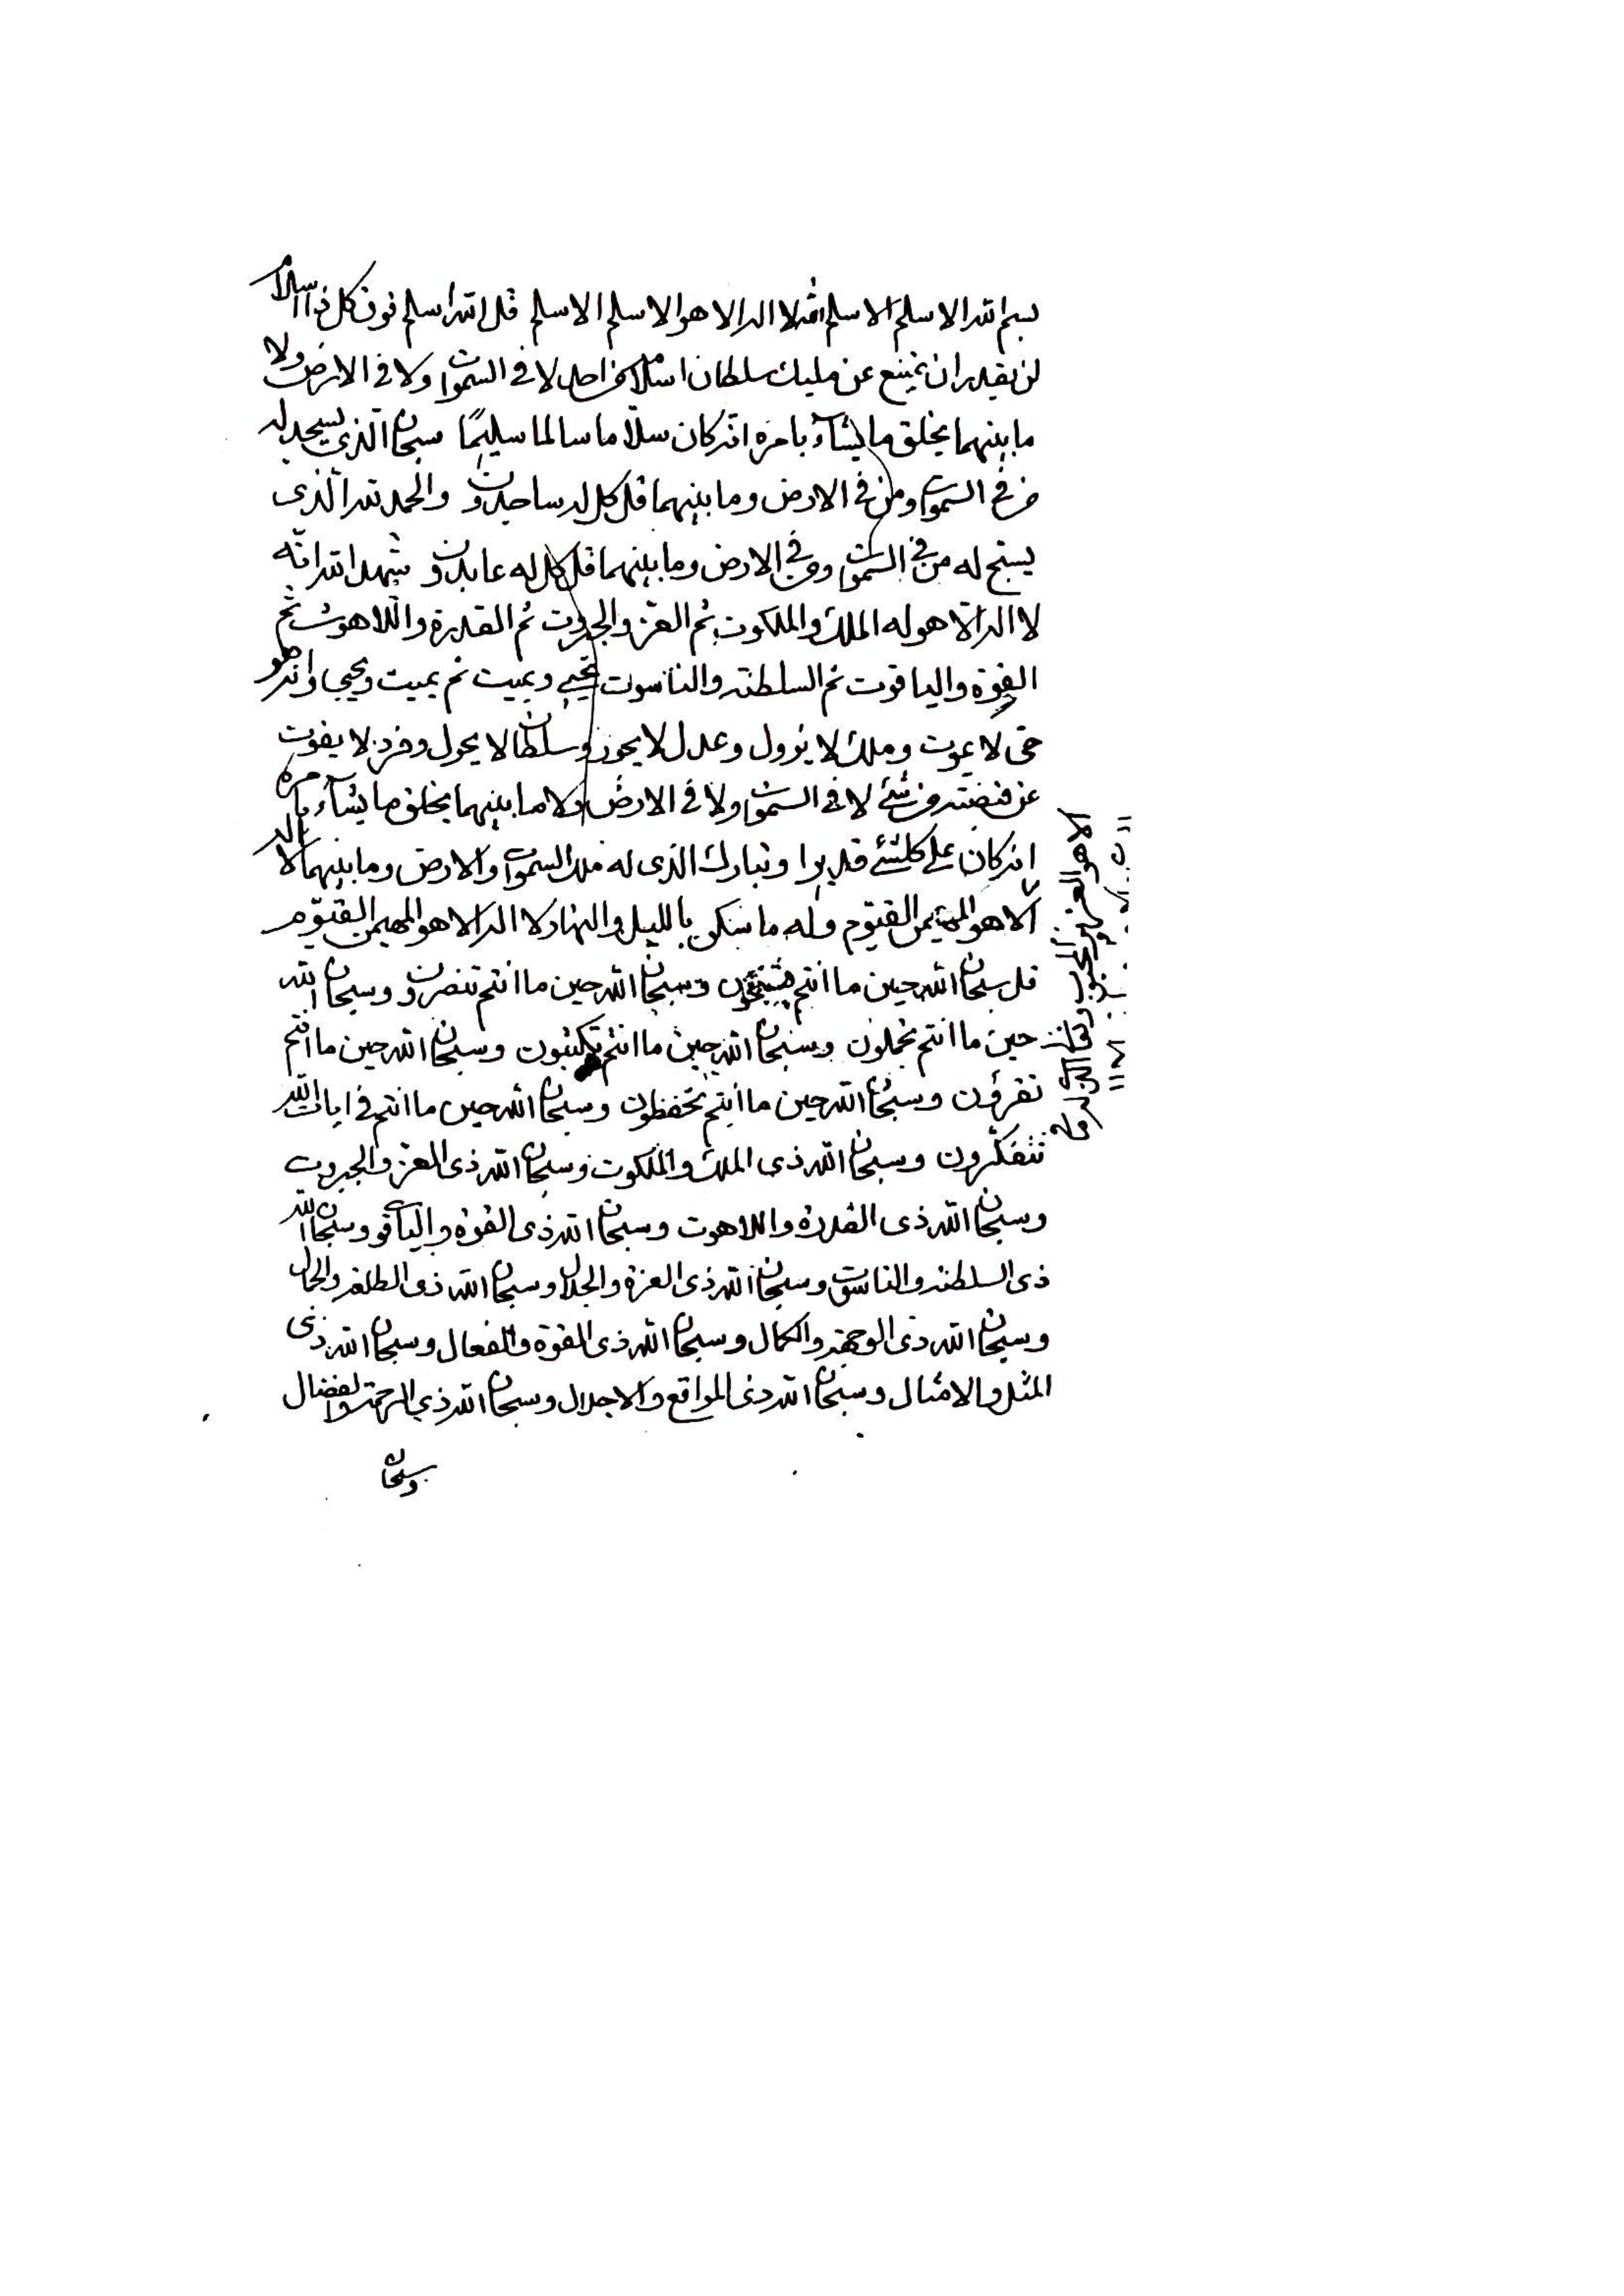 بسم الله الاسلم الاسلم الله لا اله الا هو الاسلم الاسلم قل الله اسلم فوق كل ذا اسلام
لن يقدر ان يمتنع عن مليك سلطان اسلامه من احد لا في السموات ولا في الارض ولا
ما بينهما يخلق ما يشآء بامره انه كان سلاما سالما سليمًا سبحان الذي يسجد له
من في السموات ومن في الارض وما بينهما قل كل له ساجدون والحمد لله الذي
يسبح له من في السموات ومن في الارض وما بينهما قل كل له عابدون شهد الله انه
لا اله الا هو له الملك والملكوت ثم العز والجبروت ثم القدرة واللاهوت ثم
القوة والياقوت ثم السلطنه والناسوت يحيي ويميت ثم يميت ويحيي وانه هو
حي لا يموت وملك لا يزول وعدل لا يجور وسلطان لا يحول وفرد لا يفوت
عن قبضته من شئ لا في السموات ولا في الارض ولا ما بينهما يخلق ما يشآء بامره
انه كان على كلشئ قديرا وتبارك الذي له ملك السموات والارض وما بينهما لا اله
الا هو المهيمن القيوم وله ما سكن بالليل والنهار لا اله الا هو المهيمن القيوم
قل سبحان الله حين ما انتم وسبحان الله حين ما انتم تنصرون وسبحان الله
حين ما انتم تخملون وسبحان الله حين ما انتم تكتبون وسبحان الله حين ما انتم
تقرؤن وسبحان الله حين ما انتم تحفظون وسبحان الله حين ما انتم في ايات الله
تتفكرون وسبحان الله ذي الملك والملكوت وسبحان الله ذي العز والجبروت
وسبحان الله ذي القدرة واللاهوت وسبحان الله ذي القوة والياقوت وسبحان الله
ذي السلطنه والناسوت وسبحان الله ذي العزة والجلال وسبحان الله ذي الطلعه والجمال
وسبحان الله ذي الوجهه والكمال وسبحان الله ذي القوة والفعال وسبحان الله ذي
المثل والامثال وسبحان الله ذي المواقع والاجلال وسبحان الله ذي الرحمه والفضال
وسبحان
الا هو العزيز المحبوب